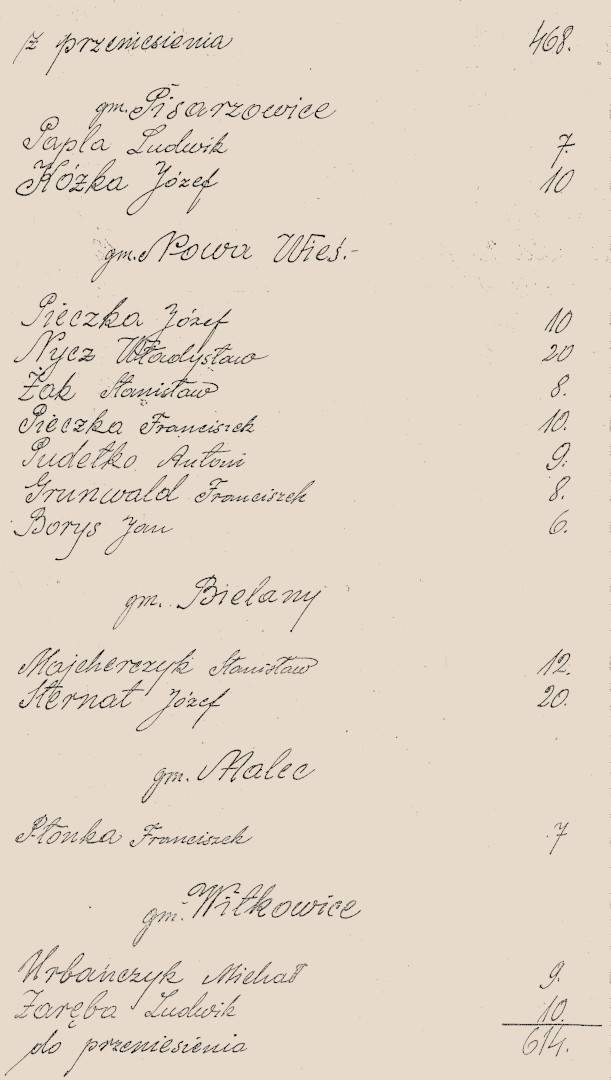 z przeniesienia 468.
gm. Pisarzowice
Papla Ludwik 7.
Kózka Józef 10
gm. Nowa Wieś.-
Pieczka Józef 10
Nycz Władysław 20
Żak Stanisław 8.
Pieczka Franciszek 10.
Pudełko Antoni 9.
Grunwald Franciszek 8.
Borys Jan 6.
gm. Bielany
Majcherczyk Stanisław 12.
Sternat Józef 20.
gm. Malec
Płonka Franciszek 7
gm. Witkowice
Urbańczyk Michał 9.
Zaręba Ludwik 10.
do przeniesienia 614.